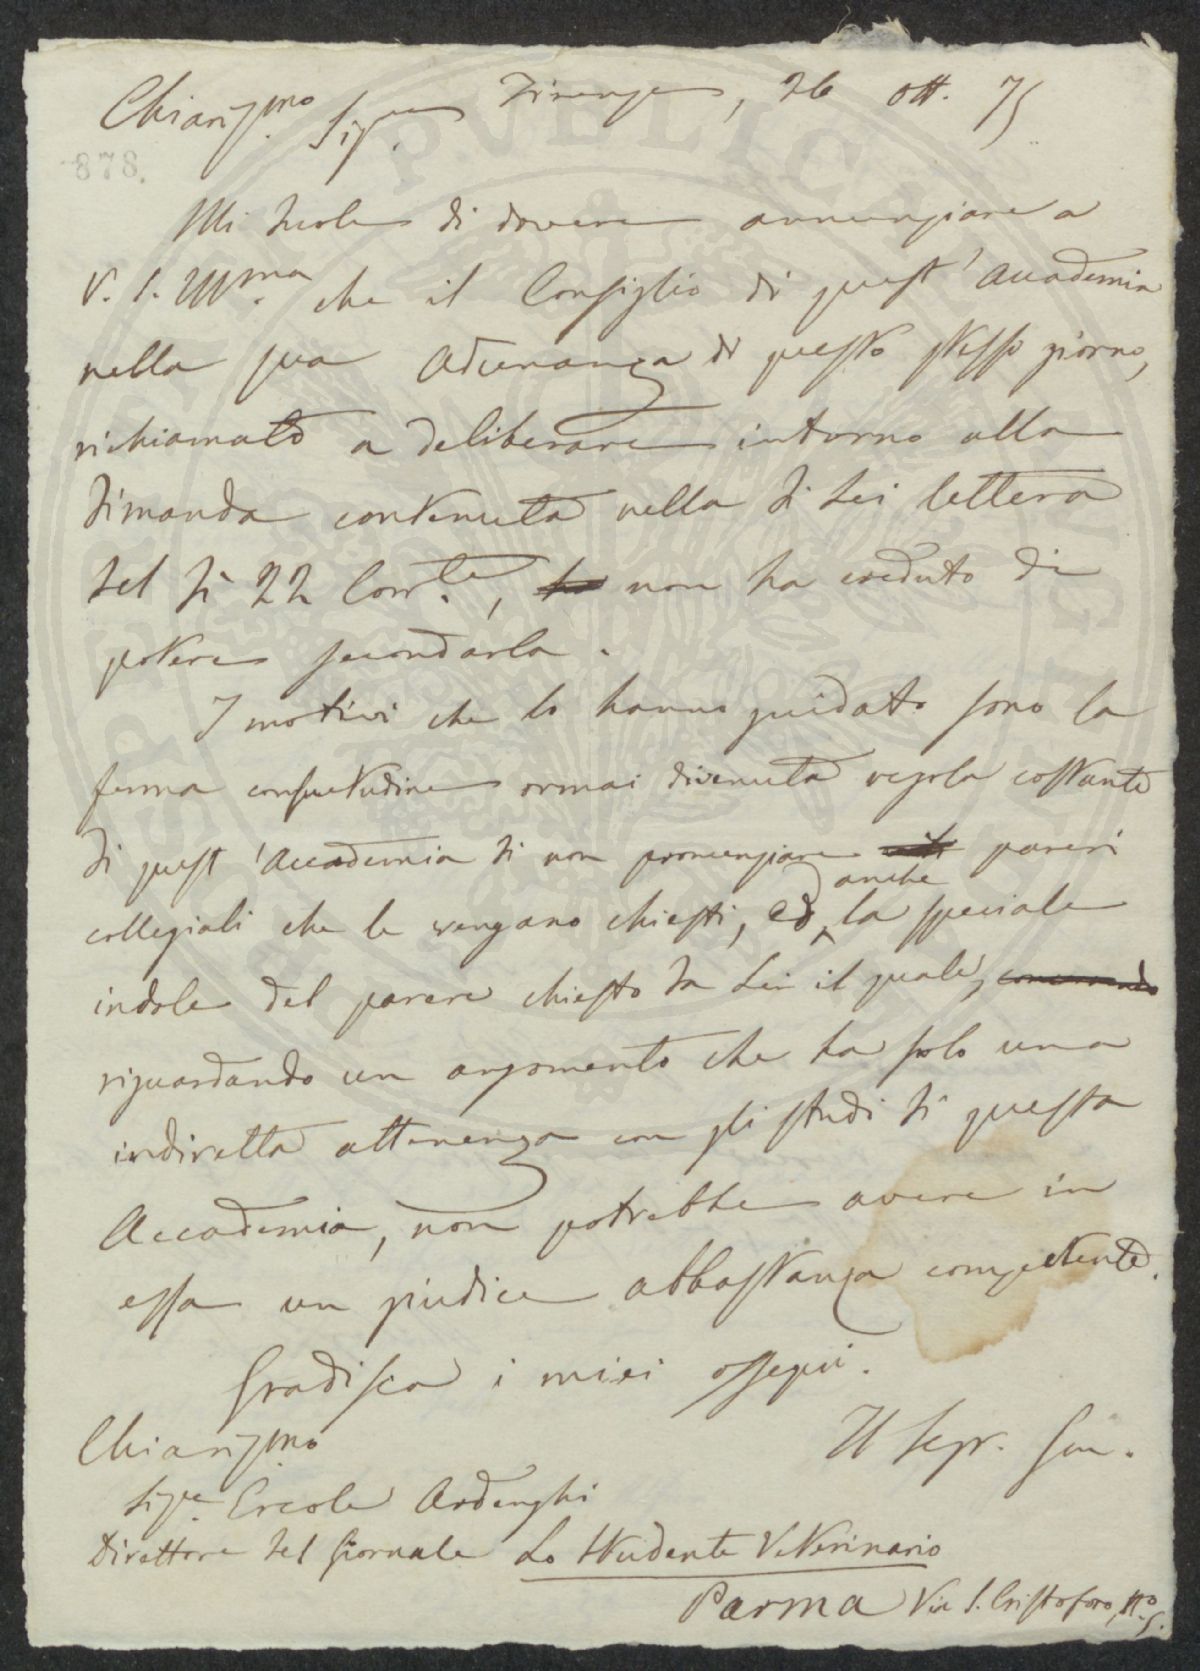 Chiariss.mo Sig.re Firenze, 26 Ott. 75
878.
Mi duole di dovere annunziare a
V. S. Ill.ma che il Consiglio di quest'Accademia
nella sua Adunanza di questo stesso giorno,
richiamato a deliberare intorno alla
dimanda contenuta nella di Lei lettera
del dì 22 Corr.te, non ha creduto di
potere secondarla.
I motivi che lo hanno guidato sono la
ferma consuetudine ormai divenuta regola costante
di quest'Accademia di non pronunziare pareri
collegiali che le vengano chiesti, ed anche la speciale
indole del parere chiesto da Lei il quale,
riguardando un argomento che ha solo una
indiretta attenenza con gli studi di questa
Accademia, non potrebbe avere in
essa un giudice abbastanza competente.
Gradisca i miei ossequi.
Il Segr. Gen.
Chiariss.mo
Sig.re Ercole Ardenghi
Direttore del Giornale Lo Studente Veterinario
Parma Via S. Cristoforo, N.o 5.